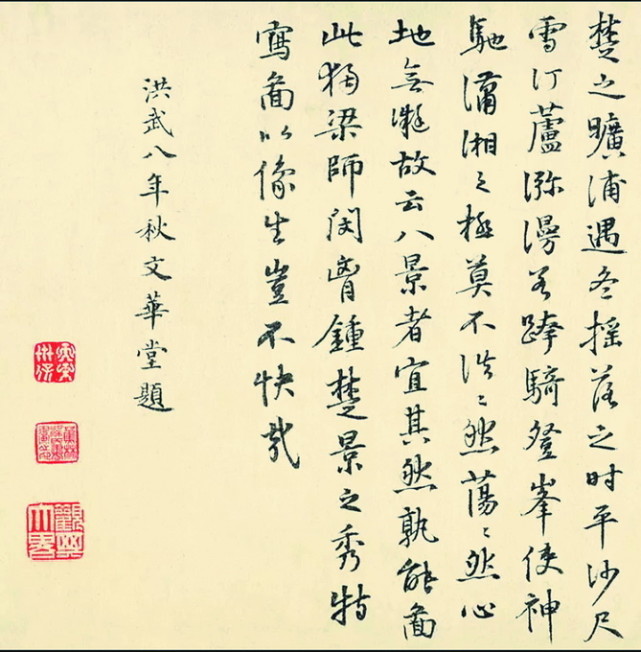 楚之曠浦遇冬搖落之時平沙尺
雪汀蘆瀰漫若跨騎登峯使神
馳瀟湘之極莫不洪〻然蕩〻然心
地無凝故云八景者宜其然孰能圖
此獨梁師閔胷鍾楚景之秀特
寫圖以像生豈不快哉
洪武八年秋文華堂題